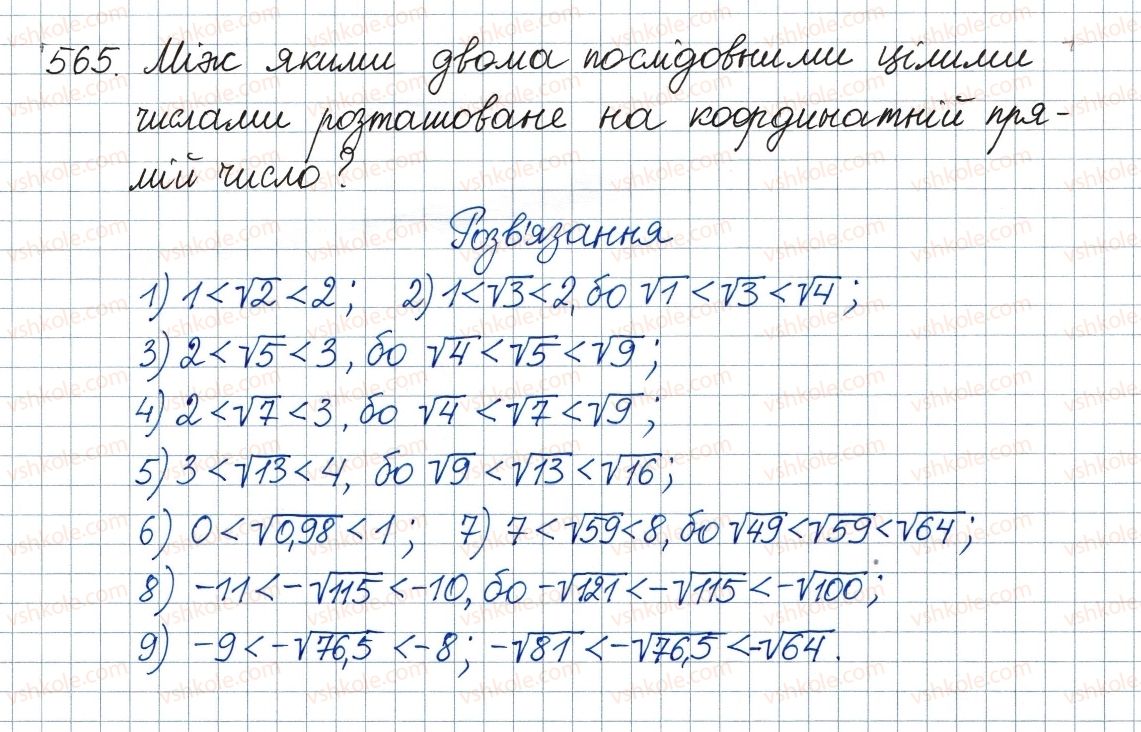 565. Між якими двома послідовними цілими
числами розташоване на координатній пря-
мій число?
Розв'язання
1) 1 < √2 < 2; 2) 1 < √3 < 2, бо √1 < √3 < √4;
3) 2 < √5 < 3, бо √4 < √5 < √9;
4) 2 < √7 < 3, бо √4 < √7 < √9;
5) 3 < √13 < 4, бо √9 < √13 < √16;
6) 0 < √0,98 < 1; 7) 7 < √59 < 8, бо √49 < √59 < √64;
8) -11 < -√115 < -10, бо -√121 < -√115 < -√100;
9) -9 < -√76,5 < -8; -√81 < -√76,5 < -√64.